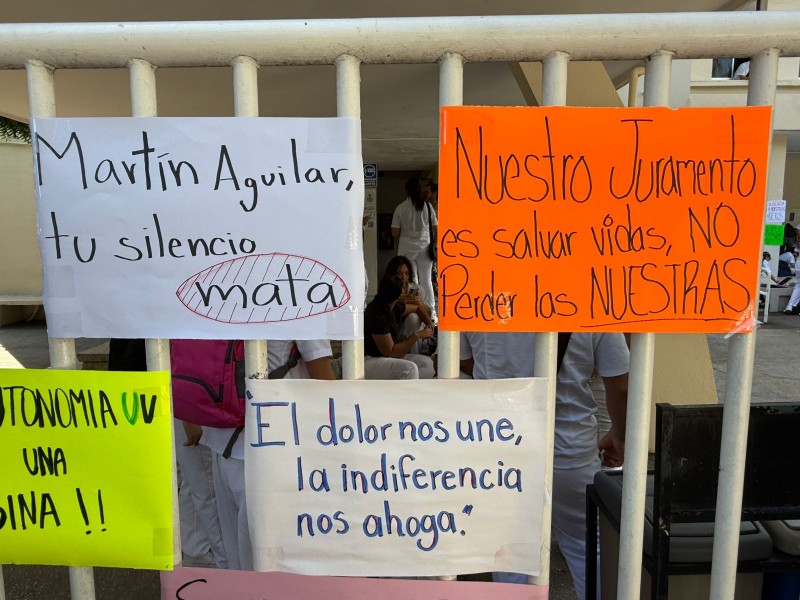 Martín Aguilar,
tu silencio
mata
Nuestro Juramento
es salvar vidas, NO
Perder las NUESTRAS
UTONOMIA UV
UNA
DINA !!
"El dolor nos une,
la indiferencia
nos ahoga."